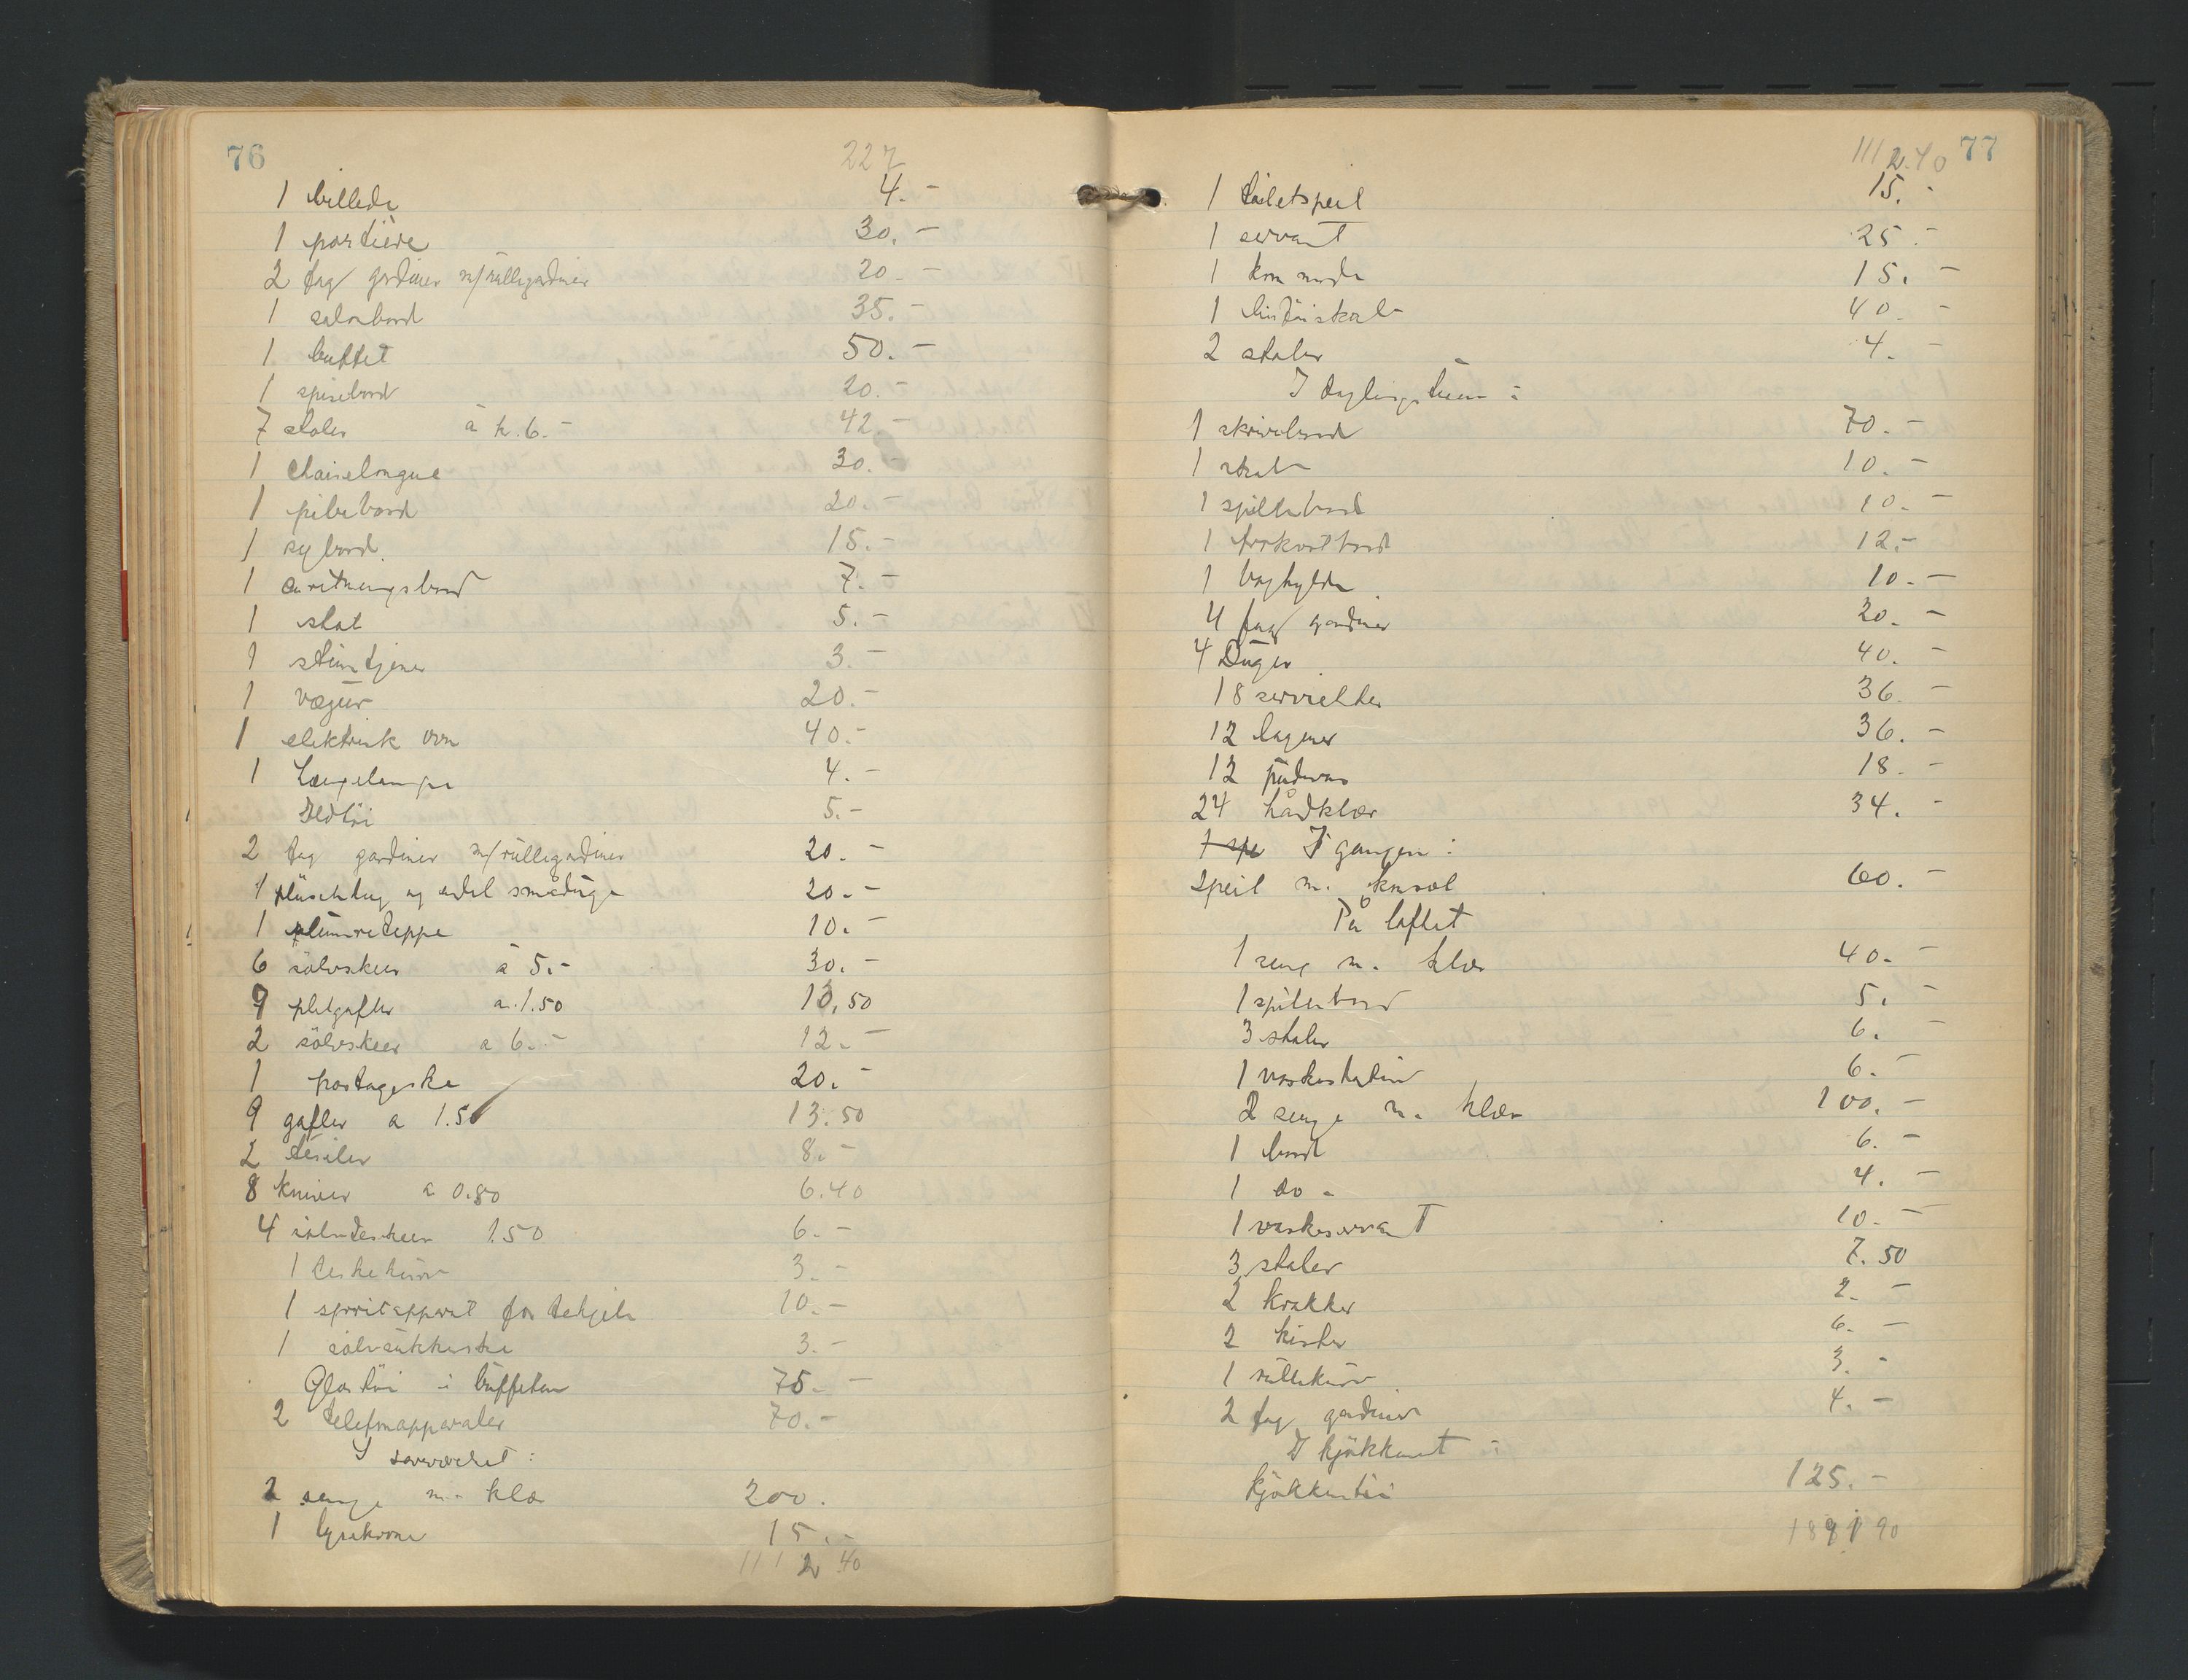 76
227
1 billede 4.-
1 portiere 30.-
2 fag gardiner m/rullegardiner 20.-
1 salonbord 35.-
1 buffet 50.-
1 spisebord 20.-
7 stoler à kr. 6.- 42.-
1 chaiselongue 30.-
1 pibebord 20.-
1 sybord. 15.-
1 anretningsbord 7.-
1 stol 5.-
1 stumtjener 3.-
1 vægur 20.-
1 elektrisk ovn 40.-
1 Længelampe 4.-
Ildtöi 5.-
2 fag gardiner m/rullegardiner 20.-
1 plüschdug og endel småduge 20.-
1 plümreteppe 10.-
6 sölvskeer à 5.- 30.-
9 pletgafler a. 1.50 13,50
2 sölvskeer a 6.- 12.-
1 potageske 20.-
9 gafler a 1.50 13.50
2 tesiler 8.-
8 kniver a 0.80 6.40
4 sölvteskeer 1.50 6.-
1 teskekurv 3.-
1 spritapparat for tekjele 10.-
1 sölvsukkerske 3.-
Glastöi i buffeten 75.-
2 telefonapparater 70.-
I soveværelset:
2 senge m. klær 200.
1 lysekrone 15.-
1112 40
77
1112.40
1 toiletspeil 15.-
1 servant 25.-
1 kommode 15.-
1 lintöiskab 40.-
2 stoler 4.-
I dagligstuen:
1 skrivebord 70.-
1 skab 10.-
1 spillebord 10.-
1 frokostbord 12.-
1 boghylde 10.-
4 fag gardiner 20.-
4 Duger 40.-
18 servietter 36.-
12 lagener 36.-
12 pudevar 18.-
24 håndklær 34.-
1 spe I gangen:
Speil m. konsol 60.-
På loftet
1 seng m. klær 40.-
1 spillebord 5.-
3 stoler 6.-
1 vaskestativ 6.-
2 senge m. klær 100.-
1 bord 6.-
1 do - 4.-
1 vaskeservant 10.-
3 stoler 7.50
2 krakker 2.-
2 kister 6.-
1 rullekurv 3.-
2 fag gardiner 4.-
I kjökkenet:
Kjökkentöi 125.-
1891 90